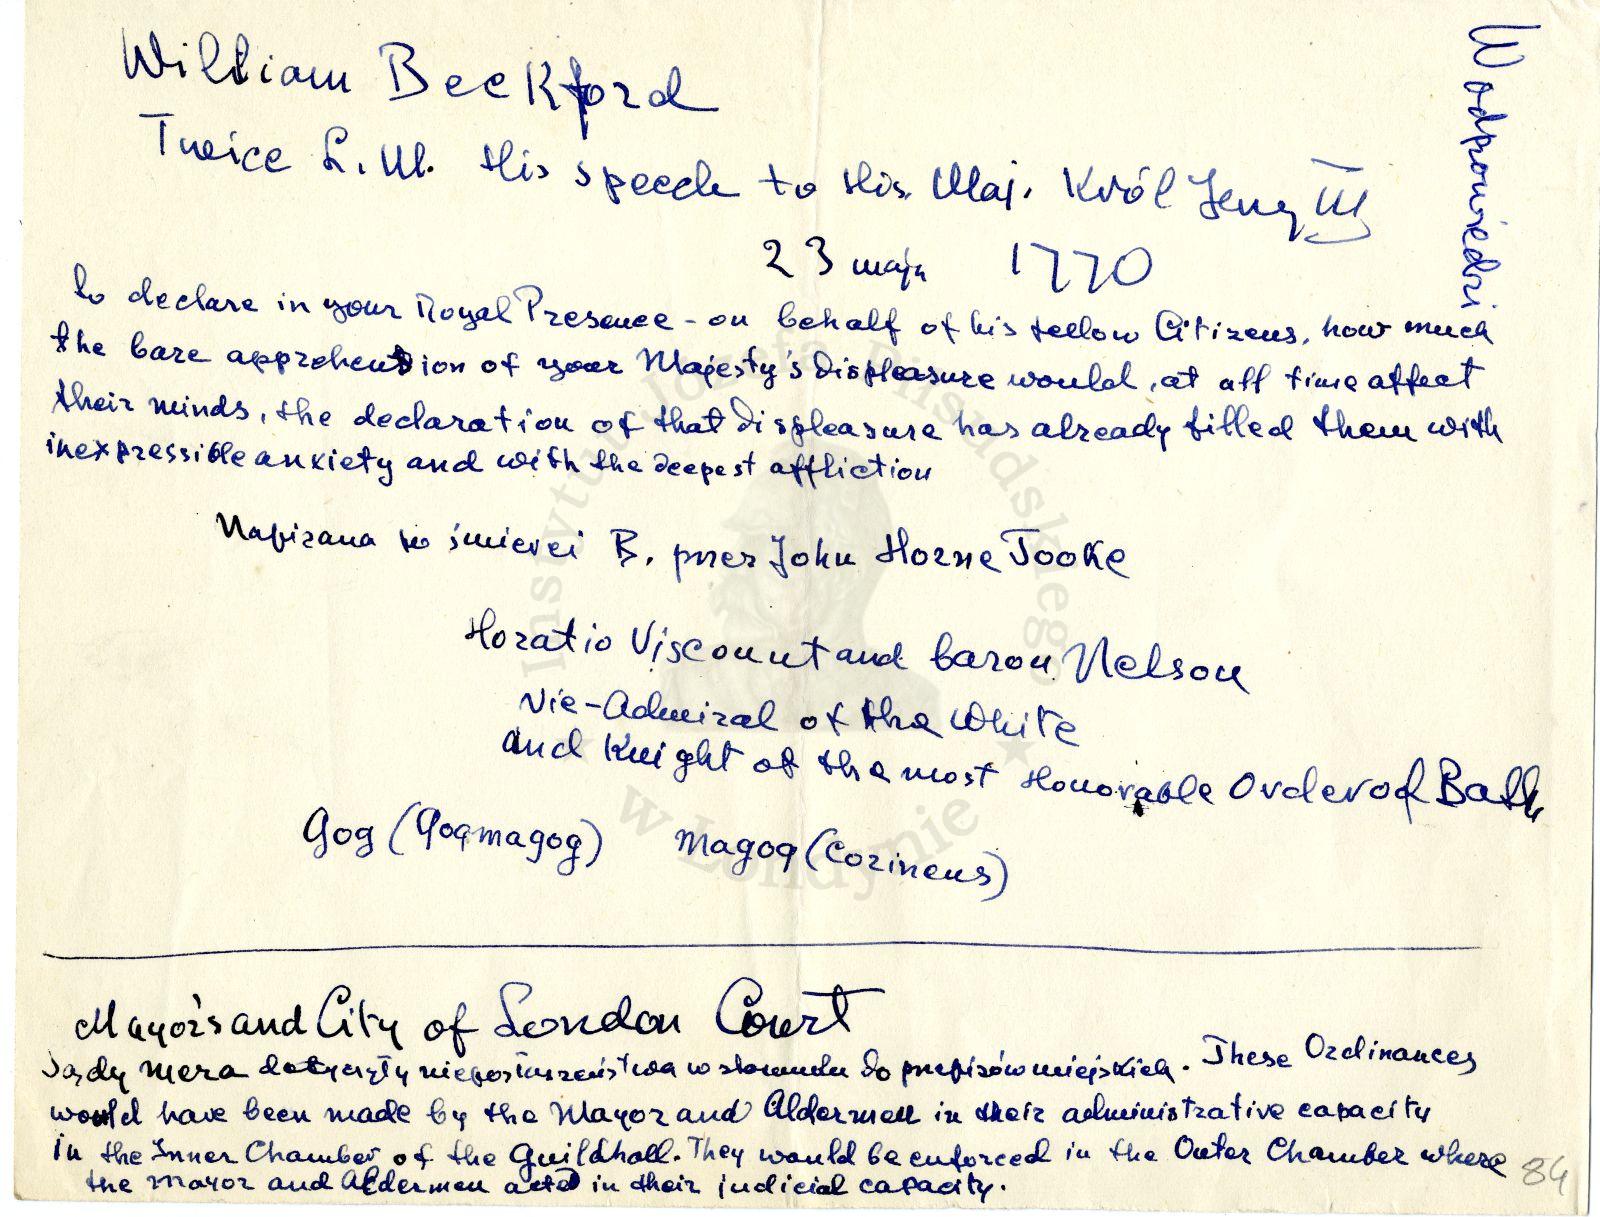 William Beckford
Twice L.M. His speech to His Maj. Król Jerzy III
23 maja 1770
W odpowiedzi
to declare in your Royal Presence - on behalf of his fellow Citizens, how much
the bare apprehension of your Majesty's Displeasure would, at all time affect
their minds, the declaration of that Displeasure has already filled them with
inexpressible anxiety and with the deepest affliction
Napisana po śmierci B. przez John Horne Tooke
Horatio Viscount and baron Nelson
Vie-Admiral of the White
and Knight of the most Honorable Order of Bath
Gog (Gogmagog) Magog (Corineus)
Mayor's and City of London Court
Sądy mera dotyczyły nieposłuszeństwa w stosunku do przepisów miejskich. These Ordinances
would have been made by the Mayor and Aldermen in their administrative capacity
in the Inner Chamber of the Guildhall. They would be enforced in the Outer Chamber where
the Mayor and Aldermen acted in their judicial capacity.
84
Instytut Józefa Piłsudskiego
w Londynie